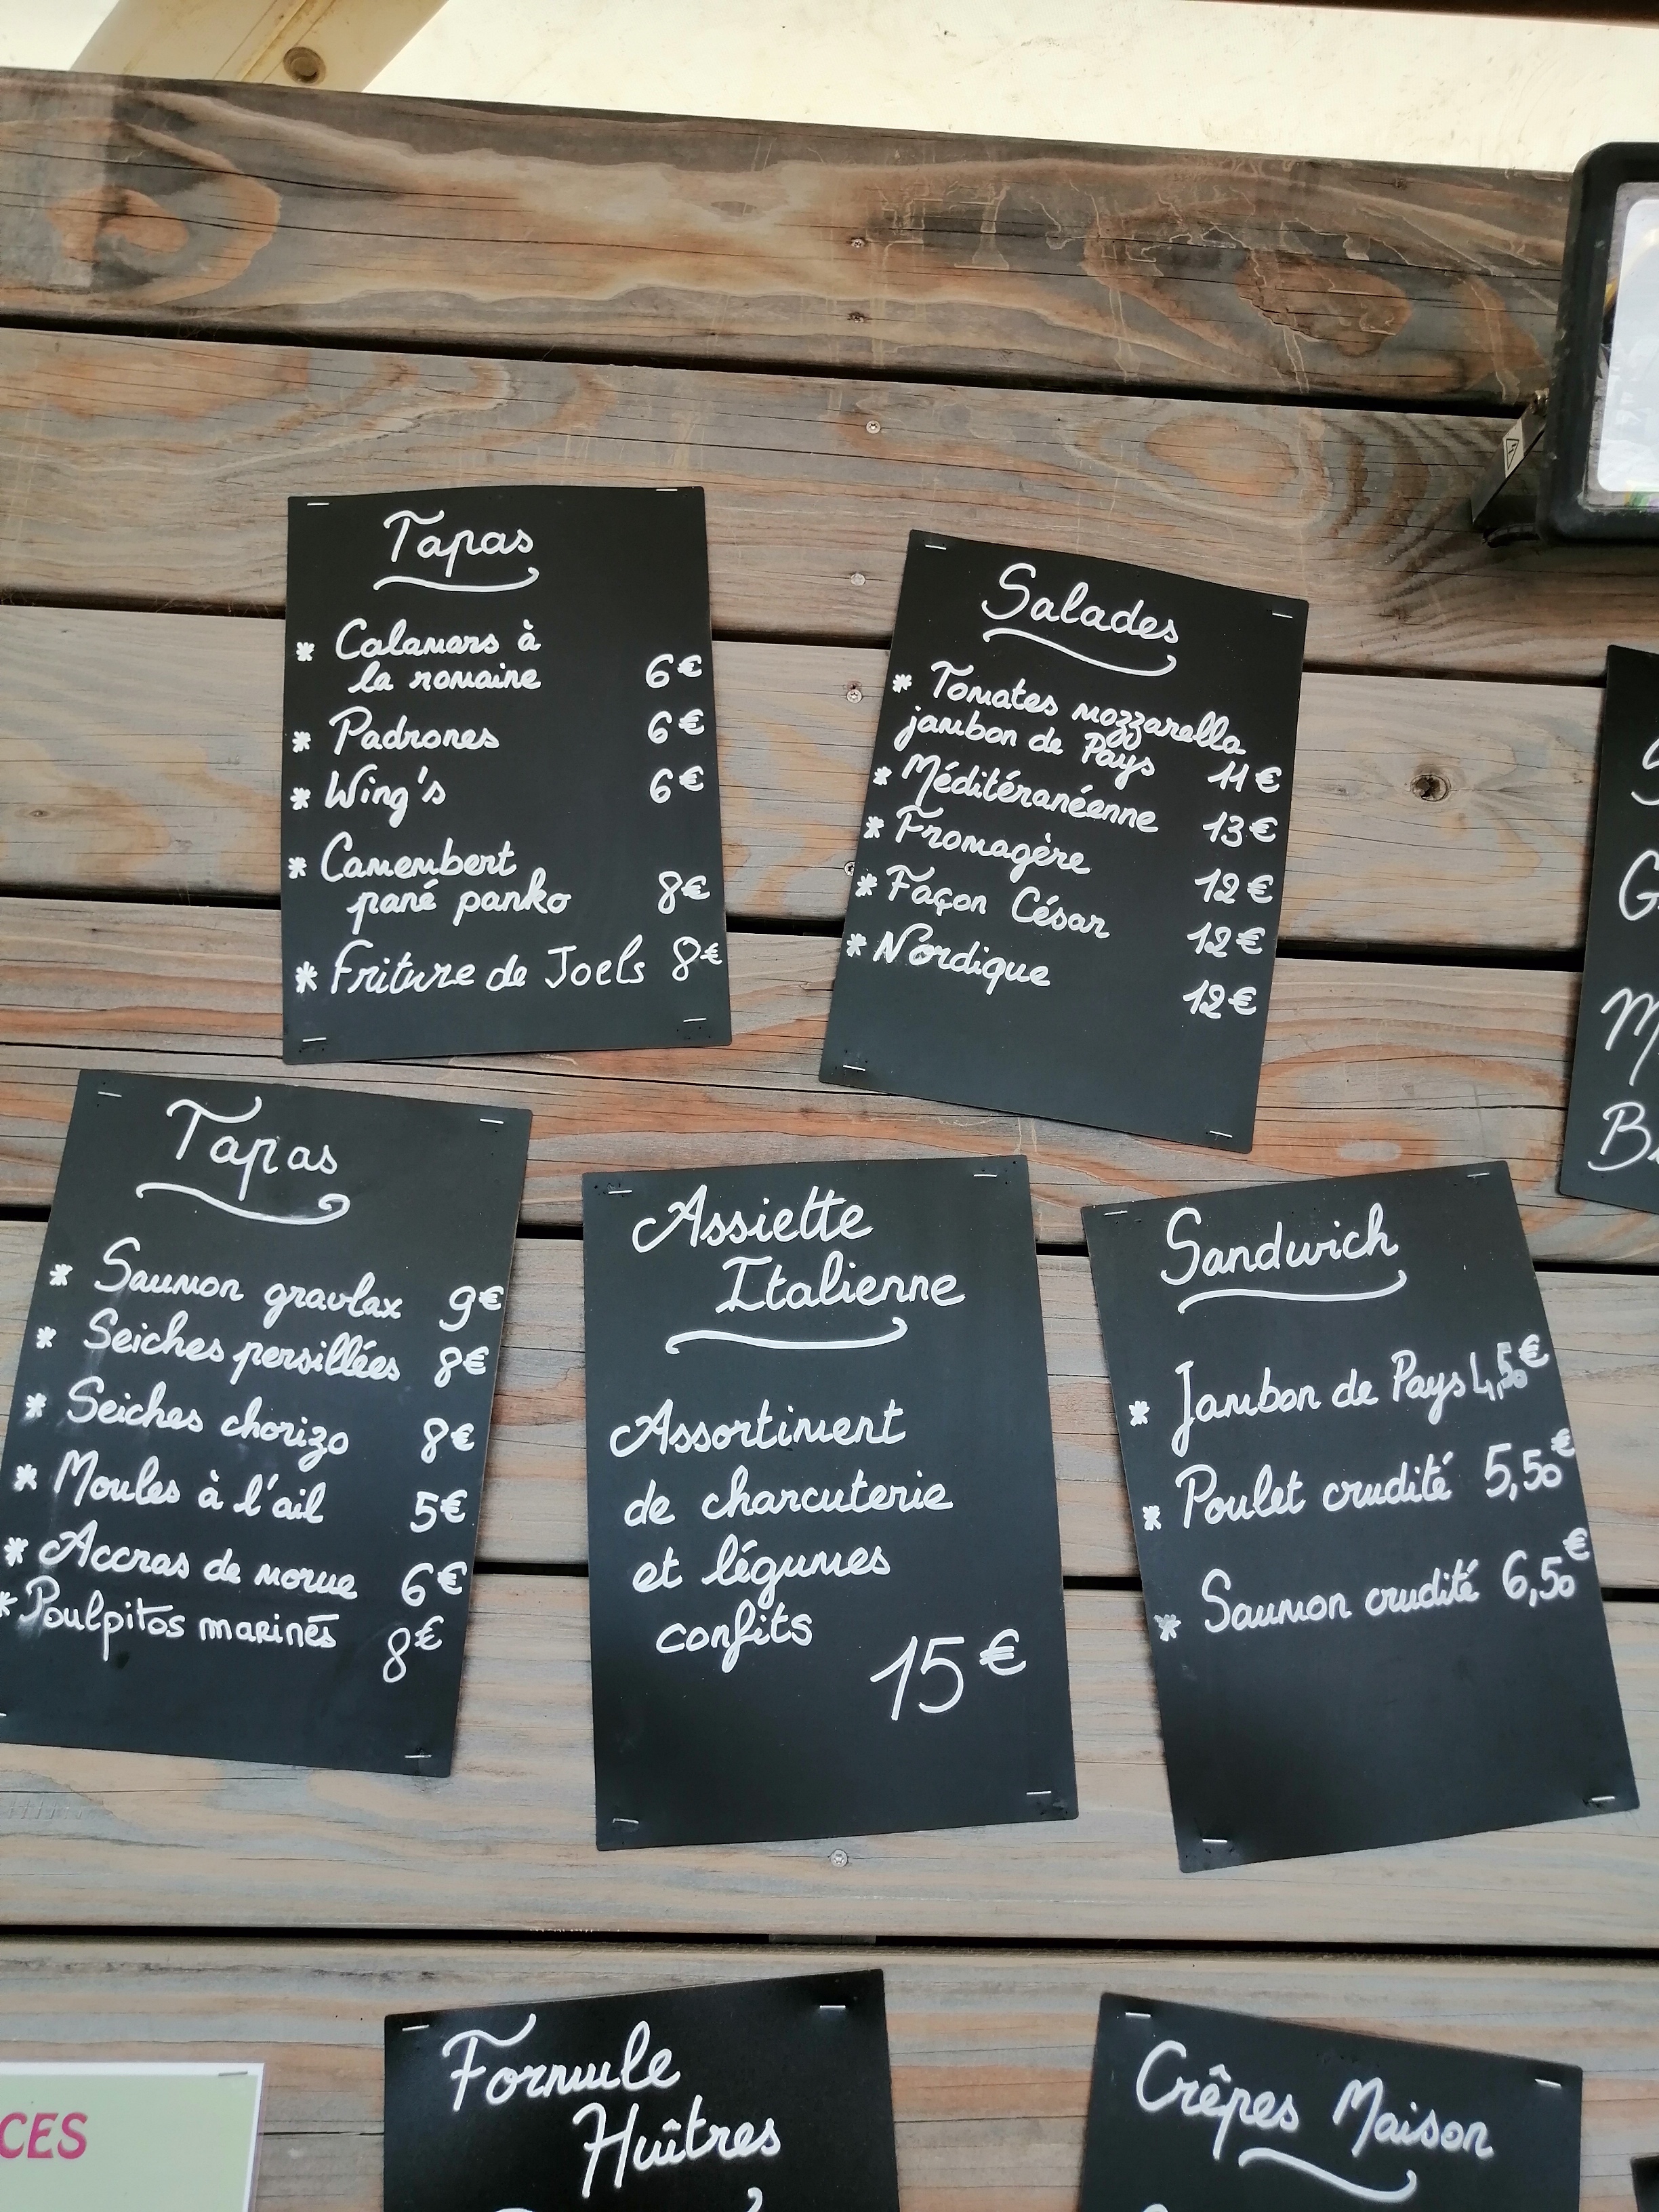 Tapas
* Calamars à
la romaine 6€
* Padrones 6€
* Wing's 6€
* Camembert
pané panko 8€
* Friture de Joels 8€
Salades
* Tomates mozzarella
jambon de Pays 11€
* Méditéranéenne 13€
* Fromagère 12€
* Façon César 12€
* Nordique 12€
Tapas
* Saumon gravlax 9€
* Seiches persillées 8€
* Seiches chorizo 8€
* Moules à l'ail 5€
* Accras de morue 6€
* Poulpitos marinés 8€
Assiette
Italienne
Assortiment
de charcuterie
et légumes
confits
15€
Sandwich
* Jambon de Pays 4,50€
* Poulet crudité 5,50€
* Saumon crudité 6,50€
CES
Formule
Huîtres
Crêpes Maison